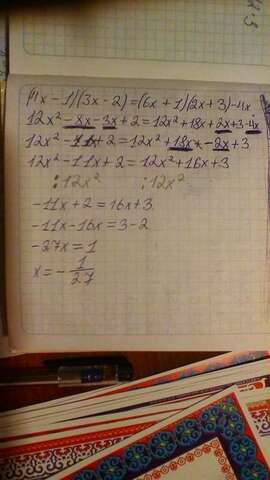 (4x-1)(3x-2)=(6x+1)(2x+3)-4x
12x²-8x-3x+2=12x²+18x+2x+3-4x
12x²-11x+2=12x²+18x+-2x+3
12x²-11x+2=12x²+16x+3
:12x² :12x²
-11x+2=16x+3
-11x-16x=3-2
-27x=1
x=-1/27